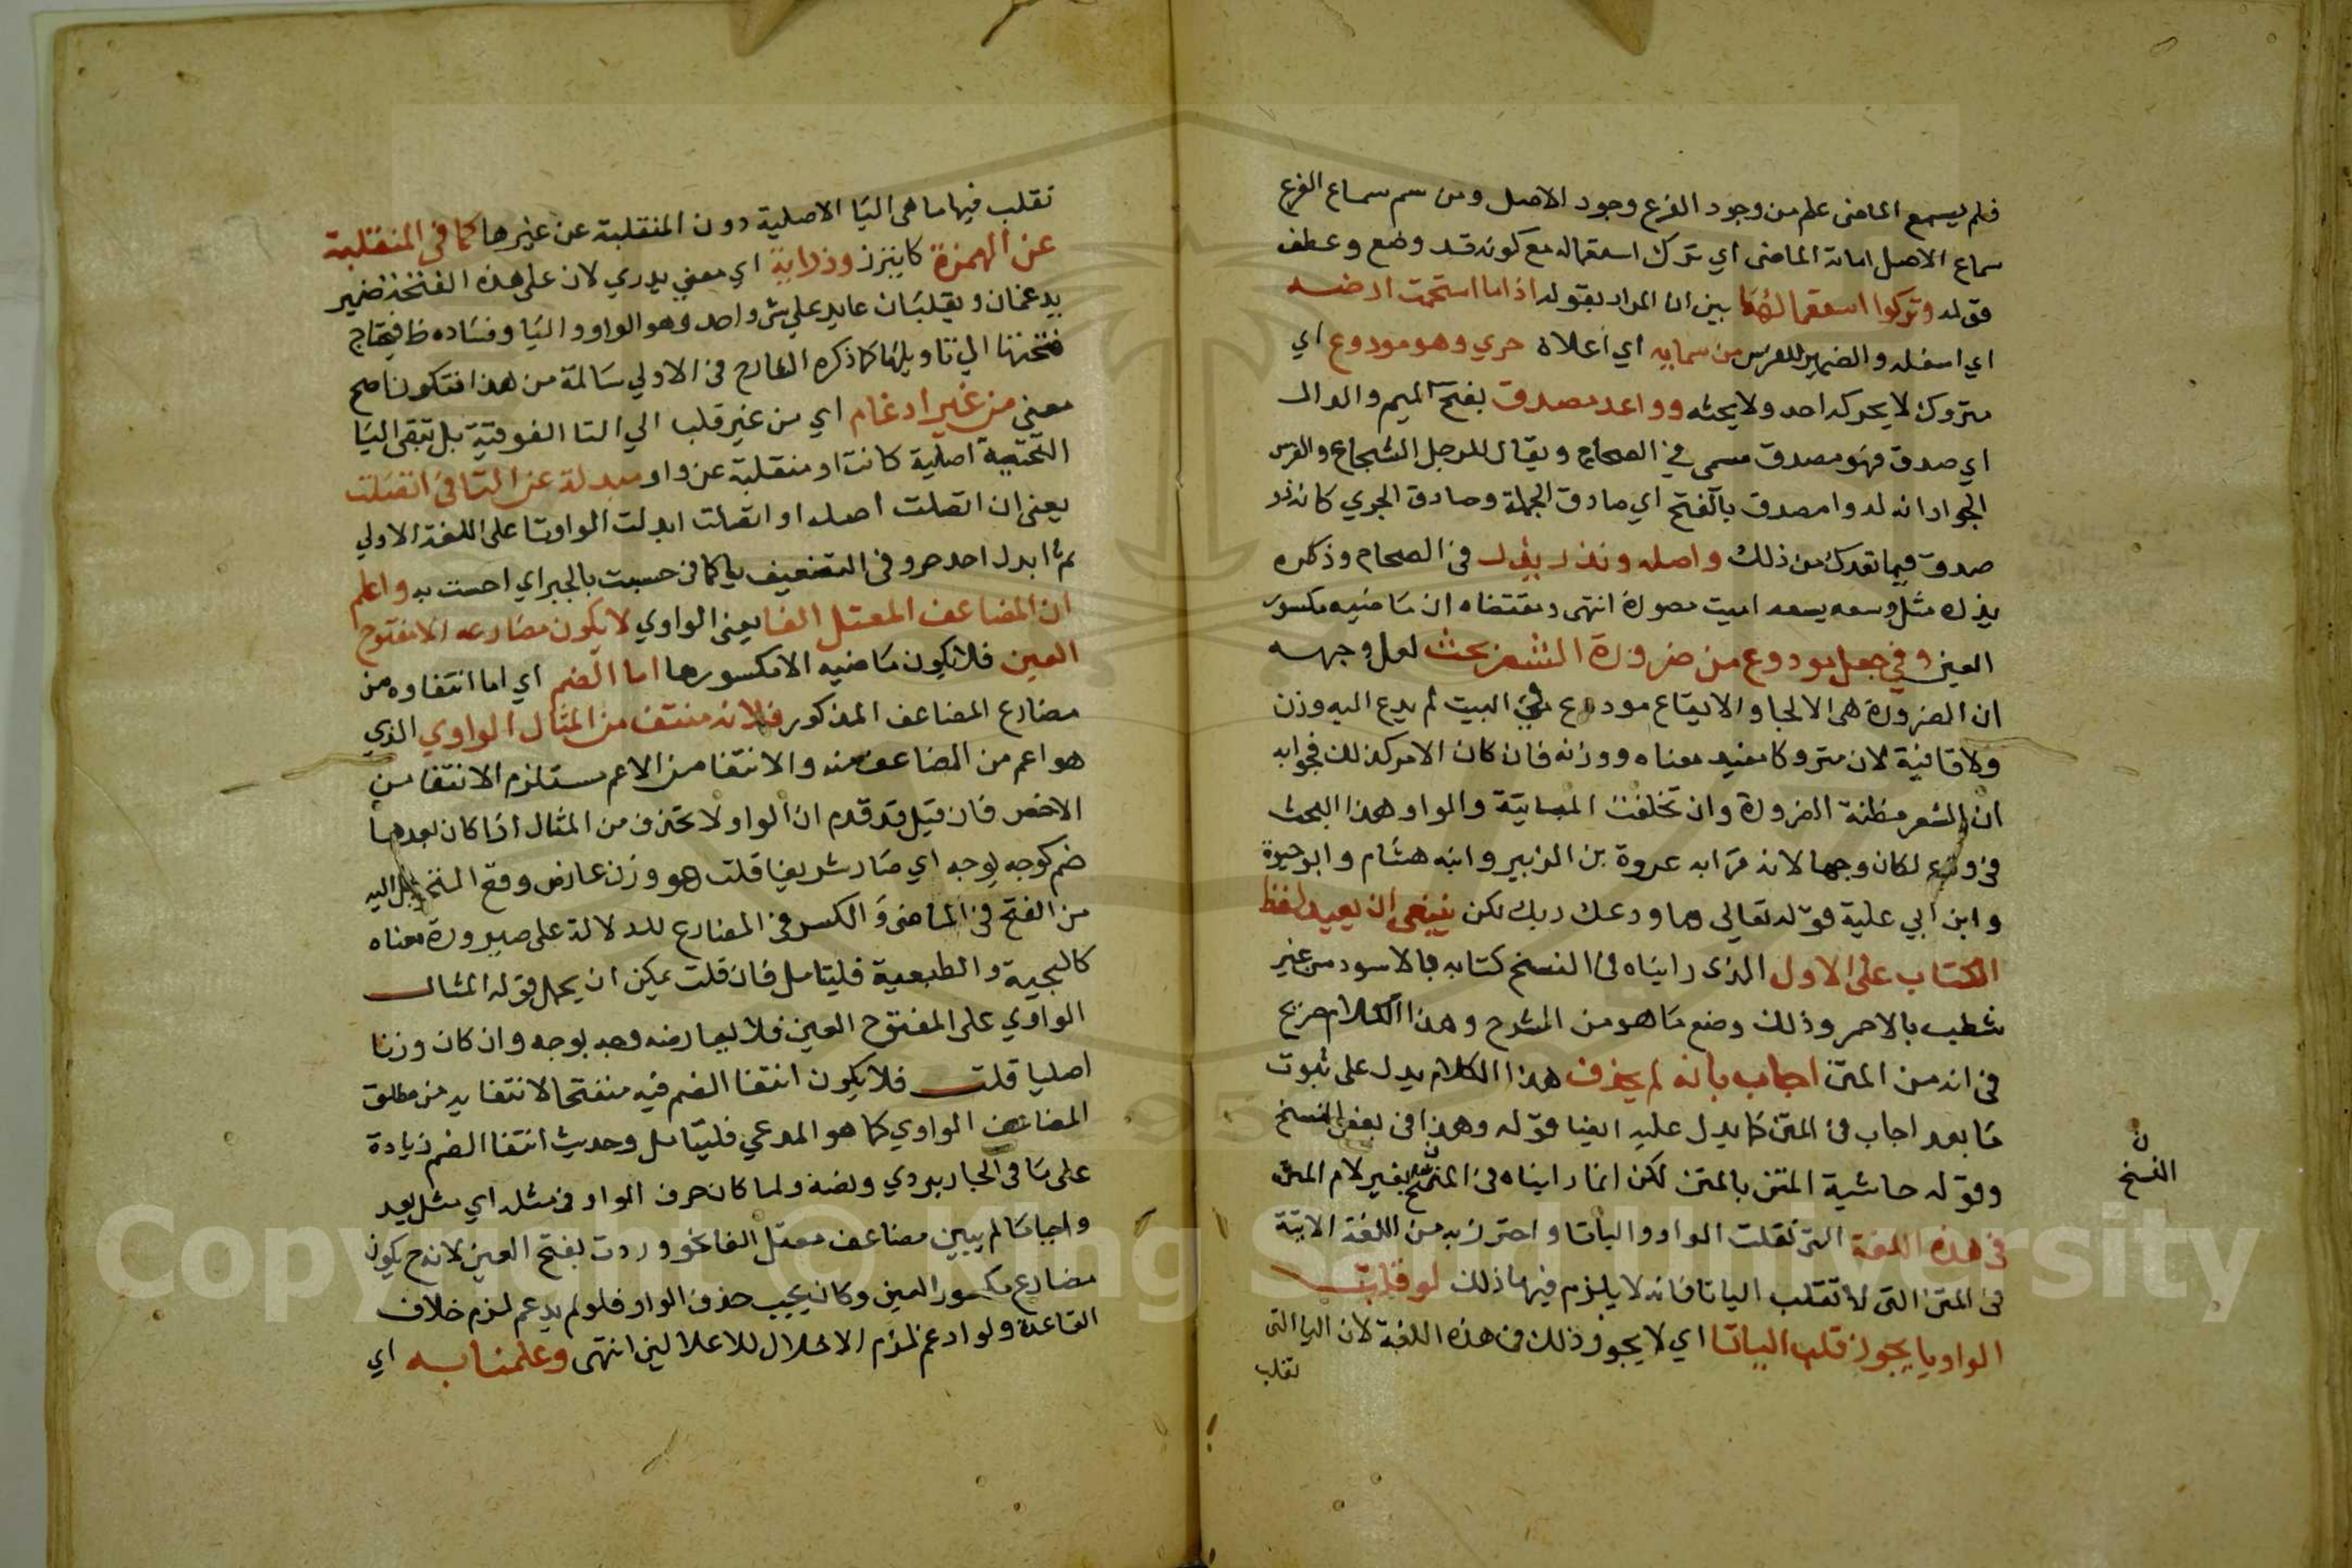 فلم يسمع الماضى علم من وجود الفرع وجود الاصل ومن سم سماع الفرع
سماع الاصل اماتة الماضى اي ترك استعماله مع كونه قد وضع وعطف
قوله وتركوا استعمالها بين ان المراد بقوله اذا ما استحمت ارضه
اي اسفله والضمير للفرس من سمايه اي اعلاه جري وهو مودوع اي
متروك لا يحركه احد ولا يحثه وواعد مصدق بفتح الميم والدال
اي صدق فهو مصدق مسمى في الصحاح ويقال للرجل الشجاع والفرس
الجواد انه لدوا مصدق بالفتح اي صادق الحملة وصادق الجري كانه ذو
صدق فيما تعدك من ذلك واصله ونذر يذر في الصحاح وذكره
يذره مثل وسعه يسعه اميت مصدره انتهى ومقتضاه ان ماضيه مكسور
العين وفي جعل مودوع من ضرورة الشعر بحث لعل وجهه
ان الضرورة هى الالجا والايقاع مودوع في البيت لم يدع اليه وزن
ولا قافية لان متروكا مفيد معناه ووزنه فان كان الامر كذلك فجوابه
ان الشعر مظنة الضرورة وان تخلفت والواو هذا البحث
في ودع لكان وجها لانه قرا به عروة بن الزبير وابنه هشام وابو حيوة
وابن ابي علية قوله تعالى ما ودعك ربك لكن ينبغى ان يعيد لفظ
الكتاب على الاول الذى رايناه في النسخ كتابه بالاسود من غير
شطب بالاحمر وذلك وضع ما هو من الشرح وهذا الكلام صريح
في انه من المتن اجاب بانه لم يحذف هذا الكلام يدل على ثبوت
ما بعد اجاب في المتن كما يدل عليه ايضا قوله وهذا في بعض النسخ
وقوله حاشية المتن بالمتن لكن انما رايناه في المتن بغير لام المتن
في هذه اللغة التى نقلت الواو والياتا واحترز به من اللغة الاتية
في المتن التى لا تقلب الياتا فانه لا يلزم فيها ذلك لو قلبت
الواو يا يجوز قلب الياتا اي لا يجوز ذلك في هذه اللغة لان اليا التى
تقلب
ن
النسخ
تقلب فيها ما هى اليا الاصلية دون المنقلبة عن غيرها كما في المنقلبة
عن الهمزة كايتزر ودراية اي معنى يدري لان على هذه الفتحة ضمير
يدغمان ويقلبان عايد على شي واحد وهو الواو واليا وفساده ظ فيحتاج
الى تاويلها كما ذكره الشارح في الاولي سالمة من هذا فتكون اصح
معنى من غير ادغام اي من غير قلب الي التا الفوقية بل تبقى اليا
التحتية اصلية كانت او منقلبة عن واو مبدلة عن التا في اتصلت
يعنى ان اتصلت اصله او اتصلت ابدلت الواو تا على اللغة الاولي
ثم ابدل احد حرو في التضعيف يا كما في حسيت بالخبر اي احست به واعلم
ان المضاعف المعتل الفا يعنى الواوي لا يكون مضارعه الا مفتوح
العين فلا يكون ماضيه الا مكسورها اما الضم اي اما انتفاوه من
مضارع المضاعف المذكور فلانه منتف من المثال الواوي الذي
هو اعم من المضاعف منه والانتفا من الاعم مستلزم الانتفا من
الاخص فان قيل قد قدم ان الواو لا تحذف من المثال اذا كان بعدها
ضم كوجه يوجه اي صار شريفا قلت هو وزن عارض وقع اليه
من الفتح في الماضى والكسر في المضارع للدلالة على صيرورة معناه
كالسجية والطبعية فليتامل فان قلت يمكن ان يحمل قوله المثال
الواوي على المفتوح العين فلا يعارضه وجه يوجه وان كان وزنا
اصليا قلت فلا يكون انتفا الضم فيه منفتحا لانتفايه من مطلق
المضاعف الواوي كما هو المدعي فليتامل وحديث انتفا الضم زيادة
على ما في الجاربردي ونصه ولما كان حرف الواو في مثله اي مثل يعد
واجبا لم يبين مضاعف معتل الفا نحو وردت بفتح العين لانه ح يكون
مضارع مكسور العين وكان يجب حذف الواو فلو لم يدغم لزم خلاف
القاعدة ولو ادغم لزم الاخلال للاعلالين انتهى وعلمنا به اي